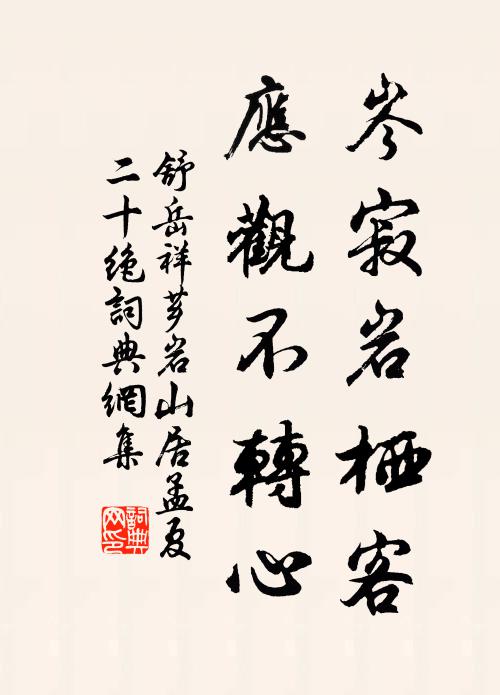 岑寂岩栖客
應觀不轉心
舒岳祥茅岩山居孟夏
二十絶詞典網集
詞典
网印